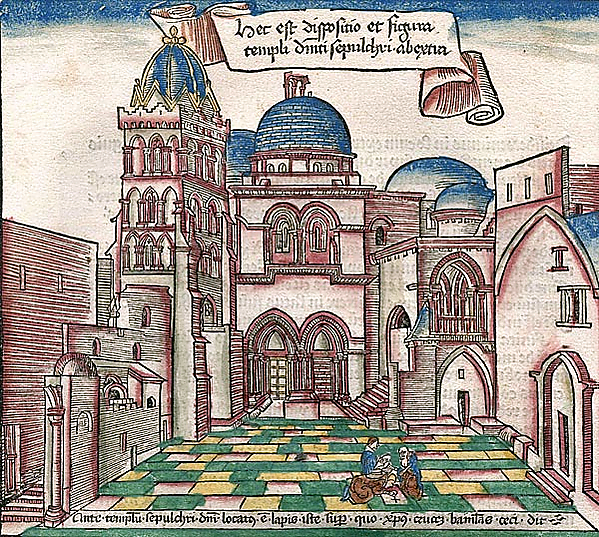 Hec est dispositio et figura
templi dnīci sepulchri abextra
Ante templū sepulchri dnī locatꝰ ē lapis iste sup quo xpūs cruceȝ baiulās ceci dit